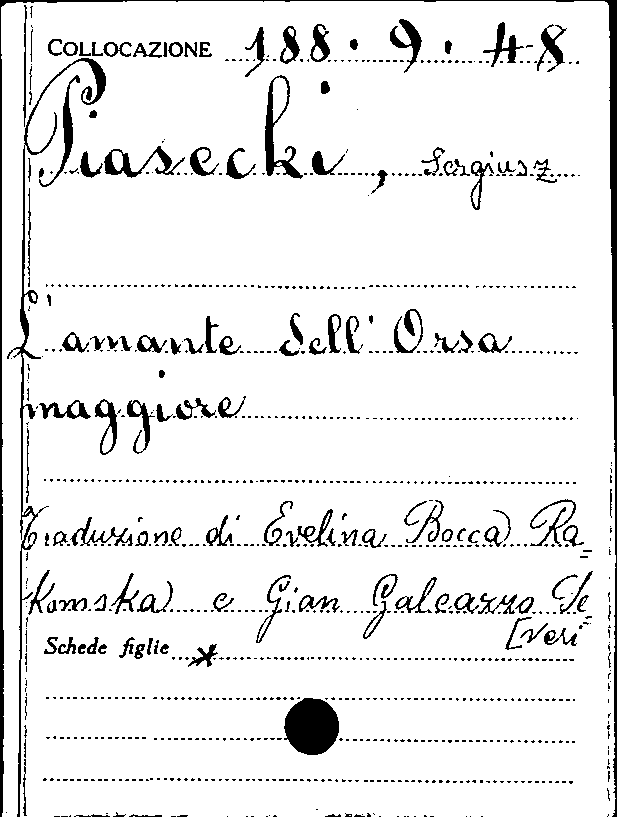 COLLOCAZIONE 188.9.48
Piasecki, Sergiusz
L'amante dell'Orsa
maggiore
Traduzione di Evelina Bocca Ra=
Komska e Gian Galeazzo Se=
[veri
Schede figlie *